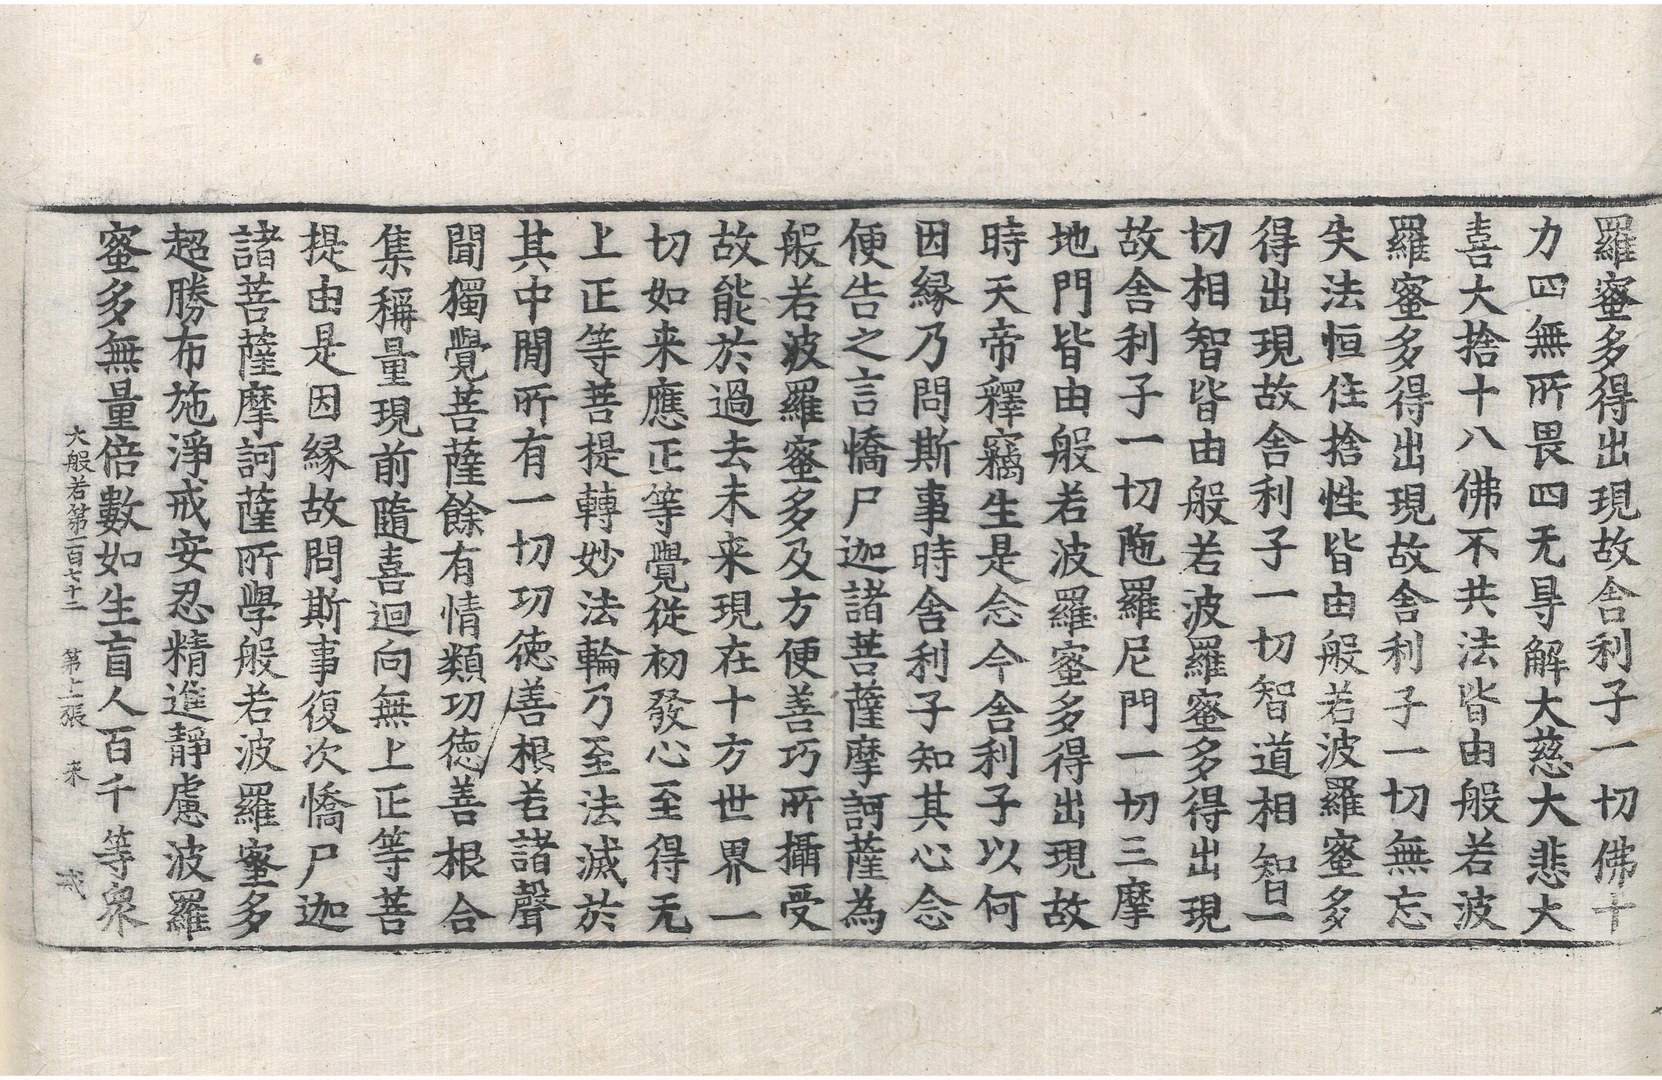 羅蜜多得出現故舍利子一切佛十
力四無所畏四无㝵解大慈大悲大
喜大捨十八佛不共法皆由般若波
羅蜜多得出現故舍利子一切無忘
失法恒住捨性皆由般若波羅蜜多
得出現故舍利子一切智道相智一
切相智皆由般若波羅蜜多得出現
故舍利子一切陁羅尼門一切三摩
地門皆由般若波羅蜜多得出現故
時天帝釋竊生是念今舍利子以何
因縁乃問斯事時舍利子知其心念
便告之言憍尸迦諸菩薩摩訶薩為
般若波羅蜜多及方便善巧所攝受
故能於過去未来現在十方世界一
切如来應正等覺從初發心至得无
上正等菩提轉妙法輪乃至法滅於
其中閒所有一切功德善根若諸聲
聞獨覺菩薩餘有情類功德善根合
集稱量現前隨喜迴向無上正等菩
提由是因縁故問斯事復次憍尸迦
諸菩薩摩訶薩所學般若波羅蜜多
超勝布施淨戒安忍精進靜慮波羅
蜜多無量倍數如生盲人百千等衆
大般若第一百七十二 第上張 来 戒